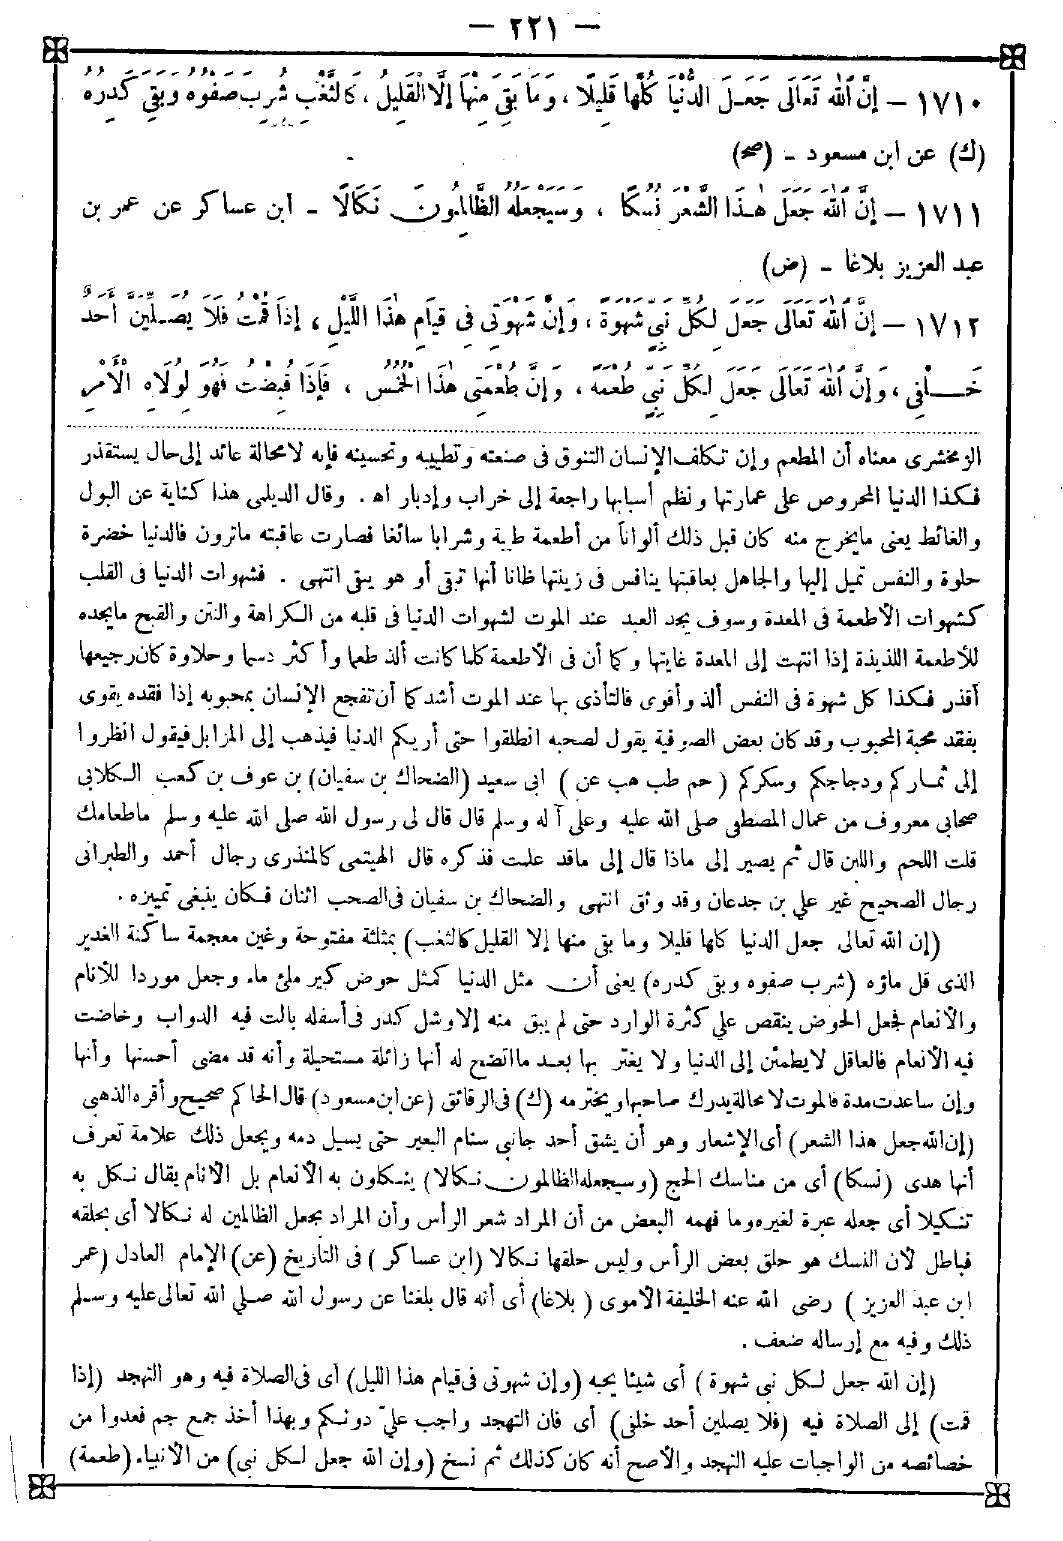 — ٢٢١ —
١٧١٠ — إِنَّ اللهَ تَعَالَى جَعَلَ الدُّنْيَا كُلَّهَا قَلِيلًا ، وَمَا بَقِيَ مِنْهَا إِلَّا الْقَلِيلُ ، كَالثَّغْبِ شُرِبَ صَفْوُهُ وَبَقِيَ كَدِرُهُ
(ك) عن ابن مسعود - (صح)
١٧١١ — إِنَّ اللهَ جَعَلَ هٰذَا الشَّعْرَ نُسُكًا ، وَسَيَجْعَلُهُ الظَّالِمُونَ نَكَالًا - ابن عساكر عن عمر بن
عبد العزيز بلاغا - (ض)
١٧١٢ — إِنَّ اللهَ تَعَالَى جَعَلَ لِكُلِّ نَبِيٍّ شَهْوَةً ، وَإِنَّ شَهْوَتِي فِي قِيَامِ هٰذَا اللَّيْلِ ، إِذَا قُمْتُ فَلَا يُصَلِّيَنَّ أَحَدٌ
خَلْفِي ، وَإِنَّ اللهَ تَعَالَى جَعَلَ لِكُلِّ نَبِيٍّ طُعْمَةً ، وَإِنَّ طُعْمَتِي هٰذَا الْخُمُسُ ، فَإِذَا قُبِضْتُ فَهُوَ لِوُلَاةِ الْأَمْرِ
الزمخشرى معناه أن المطعم وإن تكلف الإنسان التنوق فى صنعته وتطييبه وتحسينه فإنه لامحالة عائد إلى حال يستقذر
فكذا الدنيا المحروص على عمارتها ونظم أسبابها راجعة إلى خراب وإدبار اه . وقال الديلمى هذا كناية عن البول
والغائط يعنى مايخرج منه كان قبل ذلك ألواناً من أطعمة طيبة وشرابا سائغا فصارت عاقبته ماترون فالدنيا خضرة
حلوة والنفس تميل إليها والجاهل بعاقبتها ينافس فى زينتها ظانا أنها تبقى أو هو يبقى انتهى . فشهوات الدنيا فى القلب
كشهوات الأطعمة فى المعدة وسوف يجد العبد عند الموت لشهوات الدنيا فى قلبه من الكراهة والنتن والقبح مايجده
للأطعمة اللذيذة إذا انتهت إلى المعدة غايتها وكما أن فى الأطعمة كلما كانت ألذ طعما وأكثر دسما وحلاوة كان رجيعها
أقذر فكذا كل شهوة فى النفس ألذ وأقوى فالتأذى بها عند الموت أشد كما أن تفجع الإنسان بمحبوبه إذا فقده يقوى
بفقد محبة المحبوب وقد كان بعض الصوفية يقول لصحبه انطلقوا حتى أريكم الدنيا فيذهب إلى المزابل فيقول انظروا
إلى ثماركم ودجاجكم وسكركم (حم طب هب عن ) ابى سعيد (الضحاك بن سفيان) بن عوف بن كعب الكلابى
صحابى معروف من عمال المصطفى صلى الله عليه وعلى آله وسلم قال قال لى رسول الله صلى الله عليه وسلم ماطعامك
قلت اللحم واللبن قال ثم يصير إلى ماذا قال إلى ماقد علمت فذكره قال الهيتمى كالمنذرى رجال أحمد والطبرانى
رجال الصحيح غير علي بن جدعان وقد وثق انتهى والضحاك بن سفيان فى الصحب اثنان فكان ينبغى تمييزه .
(إن الله تعالى جعل الدنيا كلها قليلا وما بقى منها إلا القليل كالثغب) بمثلثة مفتوحة وغين معجمة ساكنة الغدير
الذى قل ماؤه (شرب صفوه وبقى كدره) يعنى أن مثل الدنيا كمثل حوض كبير ملئ ماء وجعل موردا للأنام
والأنعام فجعل الحوض ينقص علي كثرة الوارد حتى لم يبق منه إلا وشل كدر فى أسفله بالت فيه الدواب وخاضت
فيه الأنعام فالعاقل لا يطمئن إلى الدنيا ولا يغتر بها بعد ما اتضح له أنها زائلة مستحيلة وأنه قد مضى أحسنها وأنها
وإن ساعدت مدة فالموت لا محالة يدرك صاحبها ويخترمه (ك) فى الرقائق (عن ابن مسعود) قال الحاكم صحيح وأقره الذهبى
(إن الله جعل هذا الشعر) أى الإشعار وهو أن يشق أحد جانبى سنام البعير حتى يسيل دمه ويجعل ذلك علامة تعرف
أنها هدى (نسكا) أى من مناسك الحج (وسيجعله الظالمون نكالا) ينكلون به الأنعام بل الأنام يقال نكل به
تنكيلا أى جعله عبرة لغيره وما فهمه البعض من أن المراد شعر الرأس وأن المراد بجعل الظالمين له نكالا أى بحلقه
فباطل لأن النسك هو حلق بعض الرأس وليس حلقها نكالا (ابن عساكر ) فى التأريخ (عن) الإمام العادل (عمر
ابن عبد العزيز ) رضى الله عنه الخليفة الأموى ( بلاغا) أى أنه قال بلغنا عن رسول الله صلي الله تعالى عليه وسلم
ذلك وفيه مع إرساله ضعف .
(إن الله جعل لكل نبى شهوة ) أى شيئا يحبه (وإن شهوتى فى قيام هذا الليل) أى فى الصلاة فيه وهو التهجد (إذا
قمت) إلى الصلاة فيه (فلا يصلين أحد خلفى) أى فان التهجد واجب علىّ دونكم وبهذا أخذ جمع جم فعدوا من
خصائصه من الواجبات عليه التهجد والأصح أنه كان كذلك ثم نسخ (وإن الله جعل لكل نبى) من الأنبياء (طعمة)